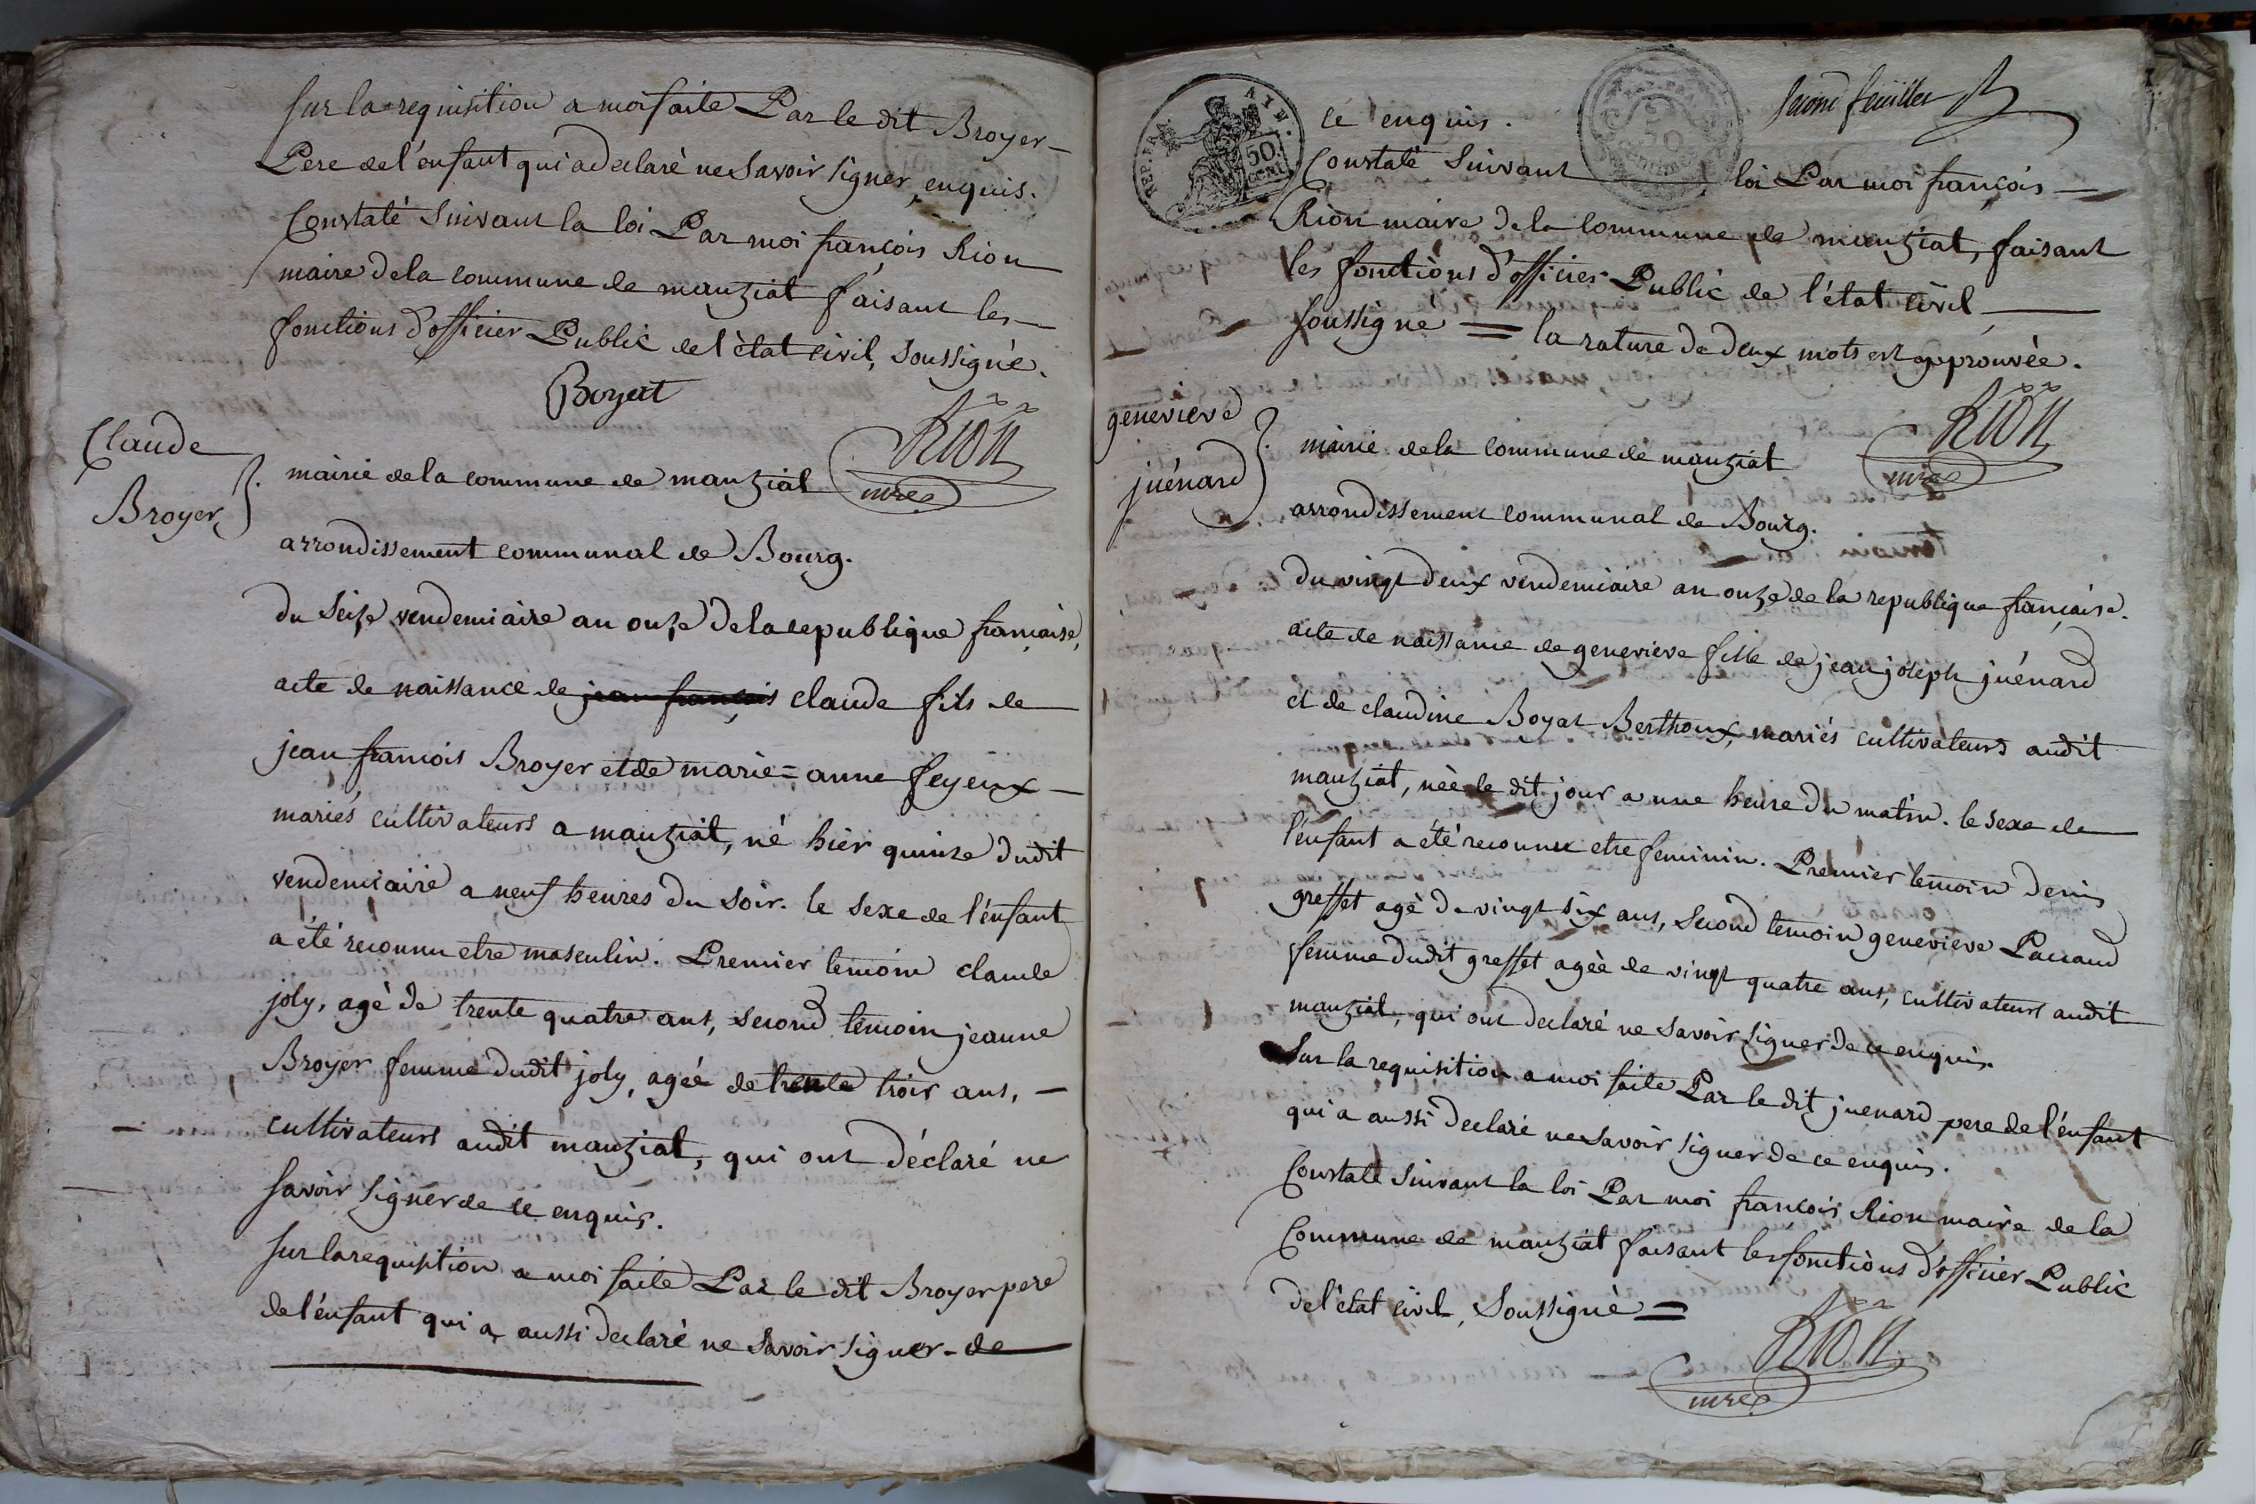 Sur la requisition a moi faite Par le dit Broyer
Pere de l'enfant qui a declaré ne Savoir signer, enquis.
Constaté Suivant la loi Par moi françois Rion
maire de la commune de manziat faisant les
fonctions d'officier Public de l'état civil, Soussigné.
Boyat
Rion
mre
Claude
Broyer
mairie de la commune de manziat
arrondissement communal de Bourg.
du Seize vendemiaire an onze de la republique française,
acte de naissance de jean françois claude fils de
jean françois Broyer et de marie=anne feyeux
mariés cultivateurs a manziat, né hier quinze dudit
vendemiaire a neuf heures du soir. le sexe de l'énfant
a été reconnu etre masculin. Premier temoin claude
joly, agé de trente quatre ans, second temoin jeanne
Broyer femme dudit joly, ageé de trente trois ans,
cultivateurs audit manziat, qui ont déclaré ne
Savoir signer de ce enquis.
Sur la requisition a moi faite Par le dit Broyer pere
de l'énfant qui a aussi declaré ne Savoir signer de
REP. FRA.
50.
CENT.
50
centimes
Second feuillet
ce enquis.
Constaté Suivant loi Par moi françois
Rion maire de la commune de manziat, faisant
les fonctions d'officier Public de l'état civil
soussigné = la rature de deux mots est approuvée.
Rion
mre
genevieve
juénard
mairie de la commune de manziat
arrondissement communal de Bourg.
du vingt deux vendemiaire an onze de la republique française.
acte de naissance de genevieve fille de jean joseph juénard
et de claudine Boyat Berthoux, mariés cultivateurs audit
manziat, née le dit jour a une heure du matin. le sexe de
l'énfant a été reconnu etre feminin. Premier temoin denis
greffet agé de vingt six ans, Second temoin genevieve Pacaud
femme dudit greffet ageé de vingt quatre ans, cultivateurs audit
manziat, qui ont declaré ne savoir signer de ce enquis.
Sur la requisition a moi faite Par le dit juenard pere de l'énfant
qui a aussi declaré ne Savoir signer de ce enquis.
Constaté Suivant la loi Par moi françois Rion maire de la
Commune de manziat faisant les fonctions d'officier Public
de l'état civil, Soussigné =
Rion
mre